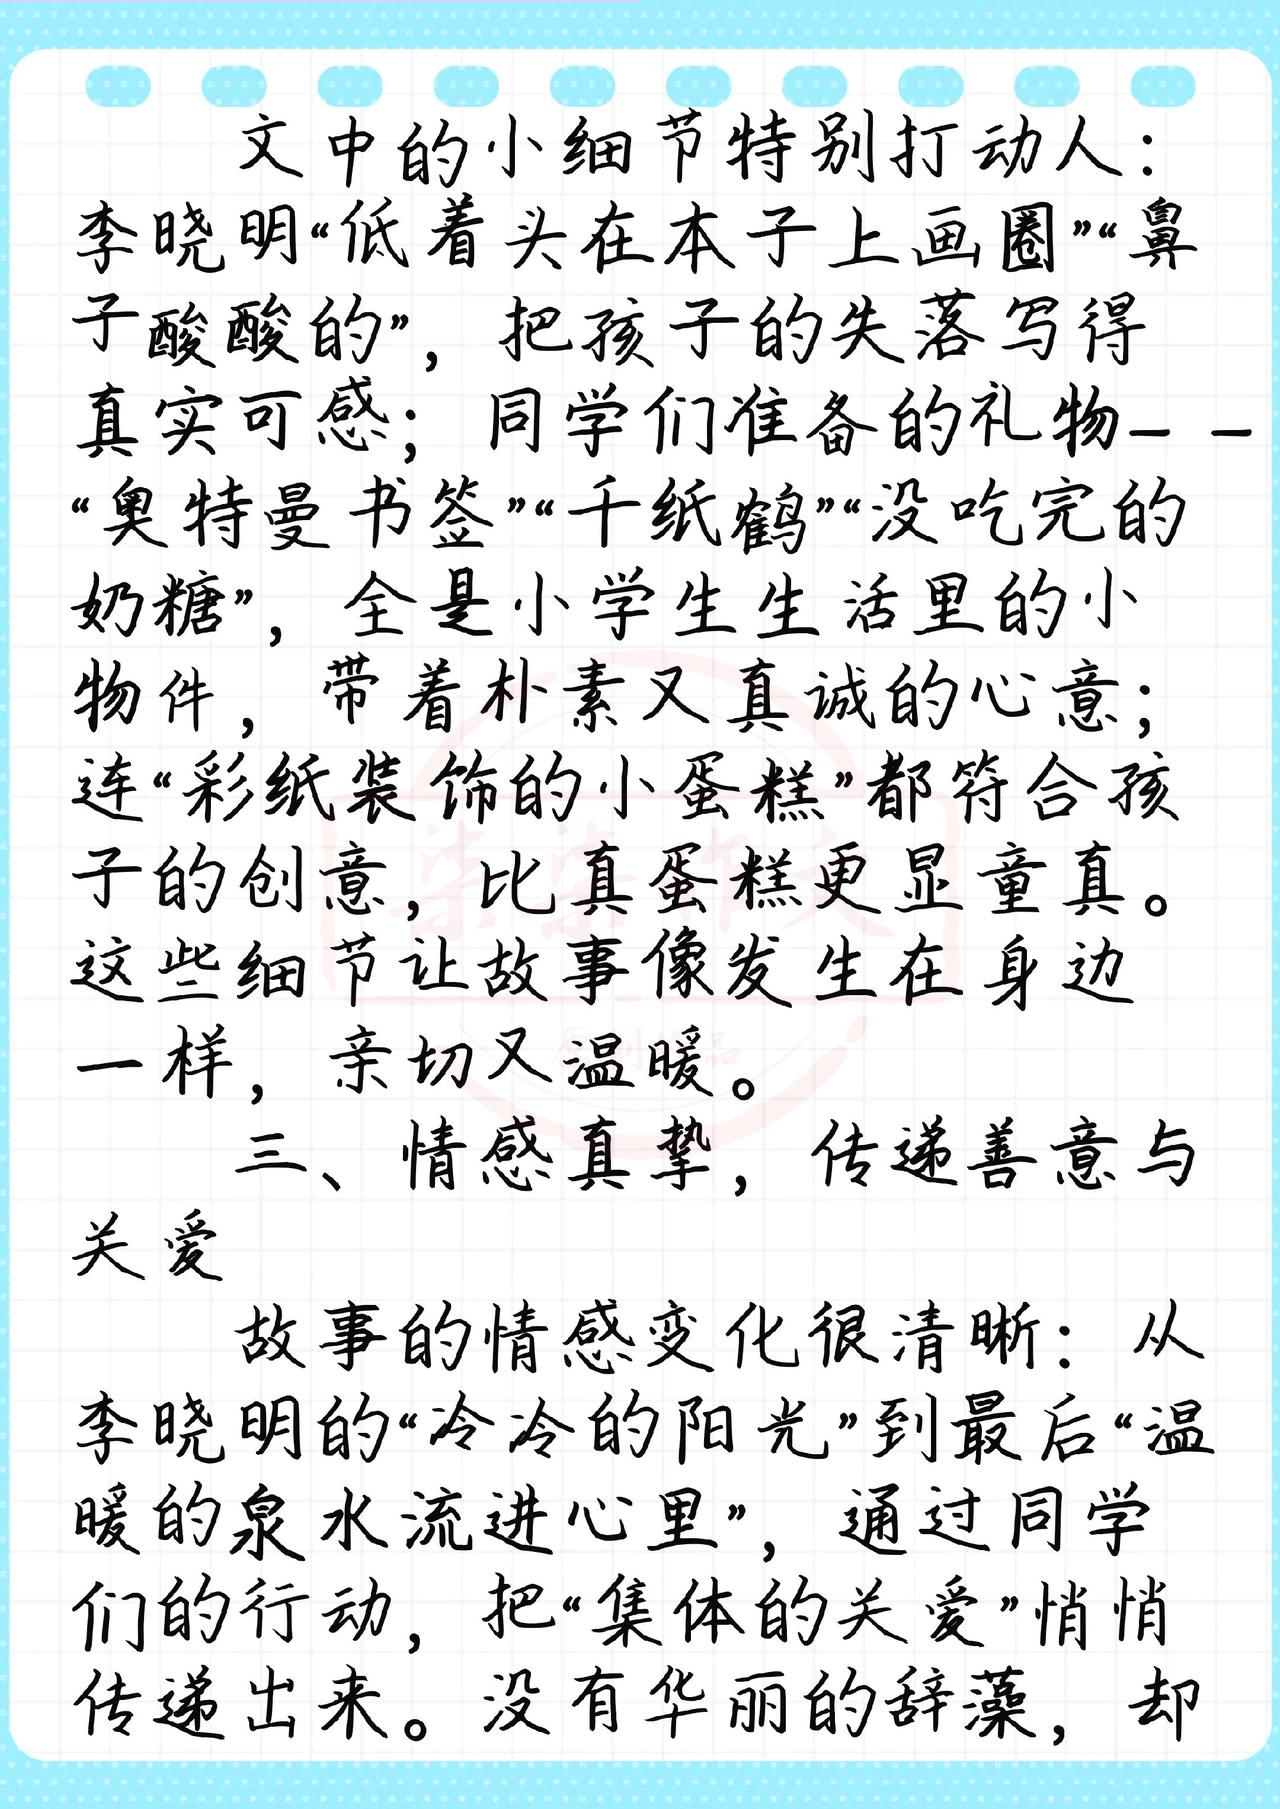 文中的小细节特别打动人：
李晓明“低着头在本子上画圈”“鼻
子酸酸的”，把孩子的失落写得
真实可感；同学们准备的礼物——
“奥特曼书签”“千纸鹤”“没吃完的
奶糖”，全是小学生生活里的小
物件，带着朴素又真诚的心意；
连“彩纸装饰的小蛋糕”都符合孩
子的创意，比真蛋糕更显童真。
这些细节让故事像发生在身边
一样，亲切又温暖。
三、情感真挚，传递善意与
关爱
故事的情感变化很清晰：从
李晓明的“冷冷的阳光”到最后“温
暖的泉水流进心里”，通过同学
们的行动，把“集体的关爱”悄悄
传递出来。没有华丽的辞藻，却